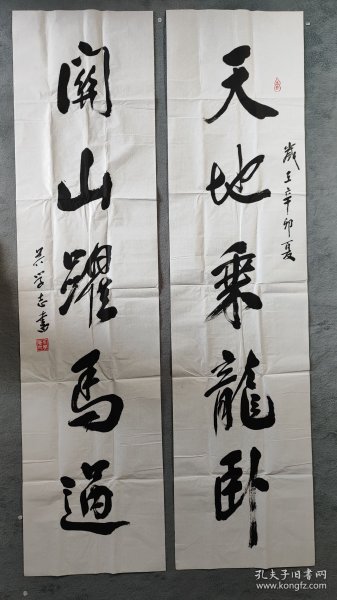 天地乘龍卧
歲在辛卯夏
關山躍馬過
吴学志書
孔夫子旧书网
www.kongfz.com